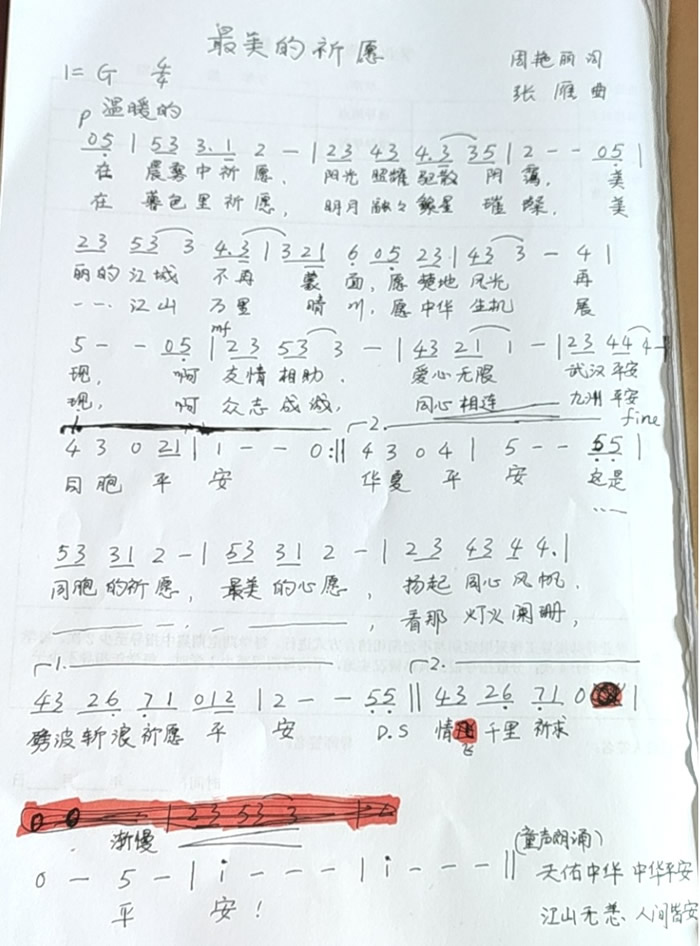 最美的祈愿
1= G 4/4
周艳丽 词
张雁 曲
p 温暖的
05 | 53 3.1 2 — | 23 43 4.3 35 | 2 — — 05 |
在 晨雾中祈愿, 阳光照耀驱散阴霭, 美
在 暮色里祈愿, 明月 繁星璀璨, 美
23 53 3 4.3 | 3 21 6 05 23 | 43 3 — 4 |
丽的江城 不再 蒙面, 愿楚地风光 再
--- 江山 万里 晴川, 愿中华生机 展
mf
5 — — 05 | 23 53 3 — | 43 21 1 — | 23 44 4
现, 啊 友情相助, 爱心无限 武汉平安
现, 啊 众志成城, 同心相连 九洲平安
1. 2. fine
4 3 0 21 | 1 — — 0 :|| 4 3 0 4 | 5 — — 55 |
同胞 平 安 华夏 平 安 这是
---
53 31 2 — | 53 31 2 — | 23 43 4 4. |
同胞的祈愿, 最美的心愿, 扬起同心风帆.
看那 灯火阑珊,
1. 2.
43 26 71 012 | 2 — — 55 || 43 26 71 0 |
劈波斩浪祈愿 平 安 D.S 情飞千里祈求
23 53 3
渐慢
(童声朗诵)
0 — 5 — | i — — — | i — — — || 天佑中华 中华平安
平 安! 江山无恙、人间皆安